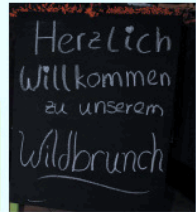 Herzlich
Willkommen
zu unserem
Wildbrunch